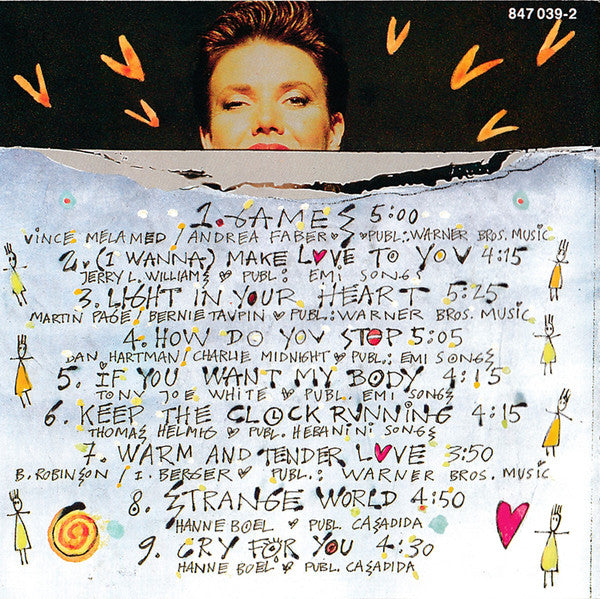 847 039-2
1. GAMES 5:00
VINCE MELAMED / ANDREA FABER ♥ PUBL.: WARNER BROS. MUSIC
2. (I WANNA) MAKE LOVE TO YOU 4:15
JERRY L. WILLIAMS ♥ PUBL: EMI SONGS
3. LIGHT IN YOUR HEART 5:25
MARTIN PAGE / BERNIE TAUPIN ♥ PUBL: WARNER BROS. MUSIC
4. HOW DO YOU STOP 5:05
DAN HARTMAN / CHARLIE MIDNIGHT ♥ PUBL: EMI SONGS
5. IF YOU WANT MY BODY 4:15
TONY JOE WHITE ♥ PUBL. EMI SONGS
6. KEEP THE CLOCK RUNNING 4:15
THOMAS HELMIG ♥ PUBL. HEBANINI SONGS
7. WARM AND TENDER LOVE 3:50
B. ROBINSON / I. BERGER ♥ PUBL.: WARNER BROS. MUSIC
8. STRANGE WORLD 4:50
HANNE BOEL ♥ PUBL. CASADIDA
9. CRY FOR YOU 4:30
HANNE BOEL ♥ PUBL. CASADIDA